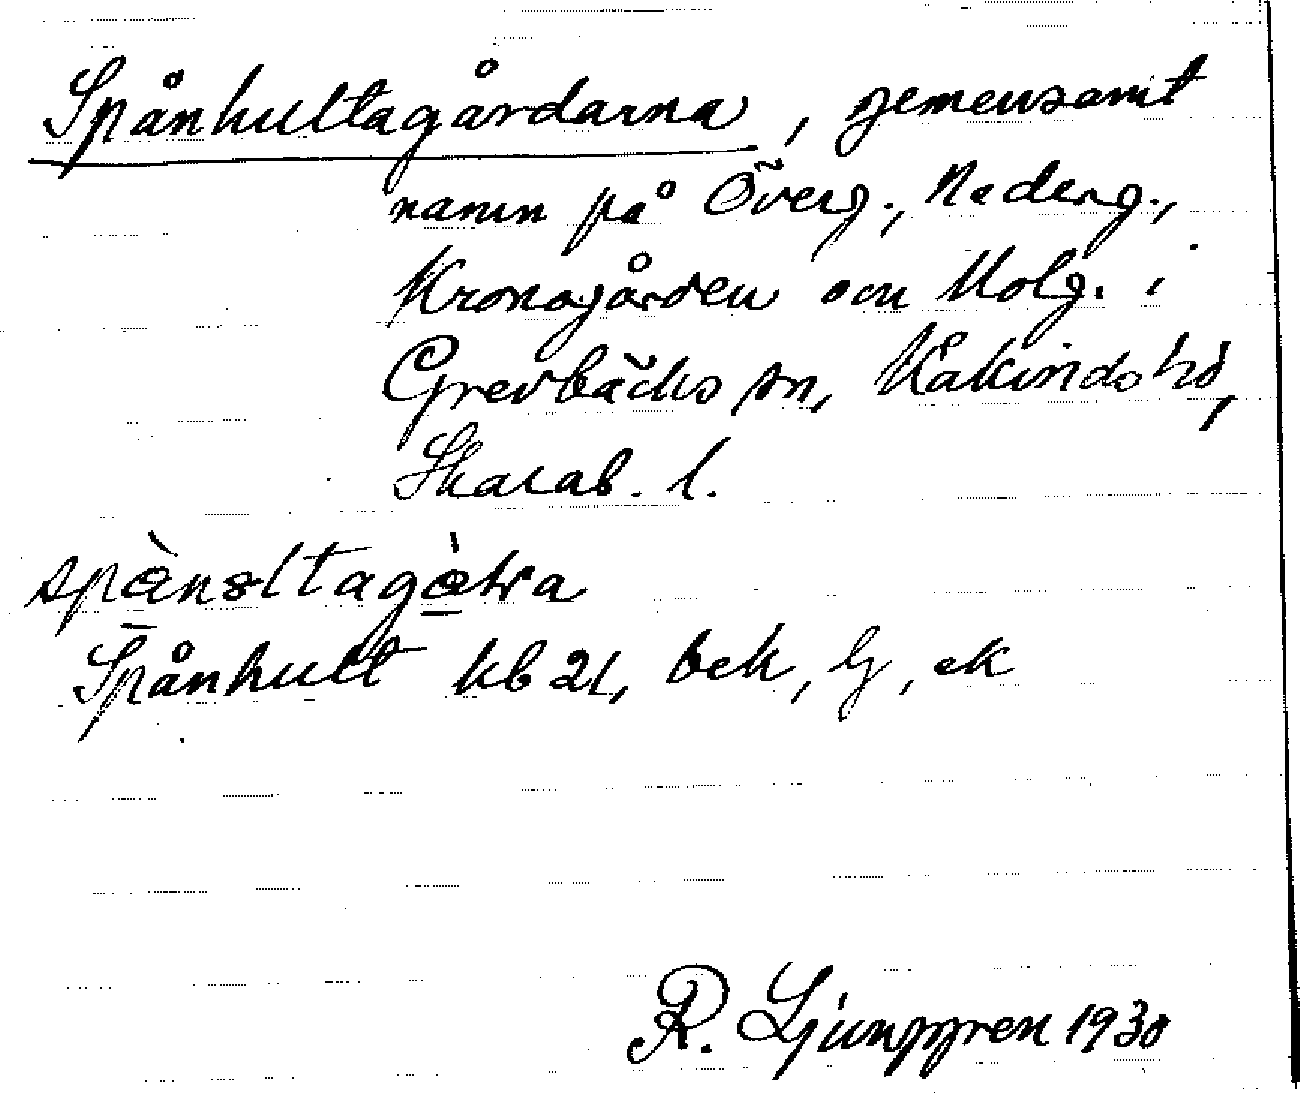 Spånhultagårdarna, gemensamt
namn på Överg., Nederg.,
Kronogården och Holg. i
Grevbäcks sn, Kåkinds hd,
Skarab. l.
Spånhult kb 21, bek, lj, ek
R. Ljunggren 1930